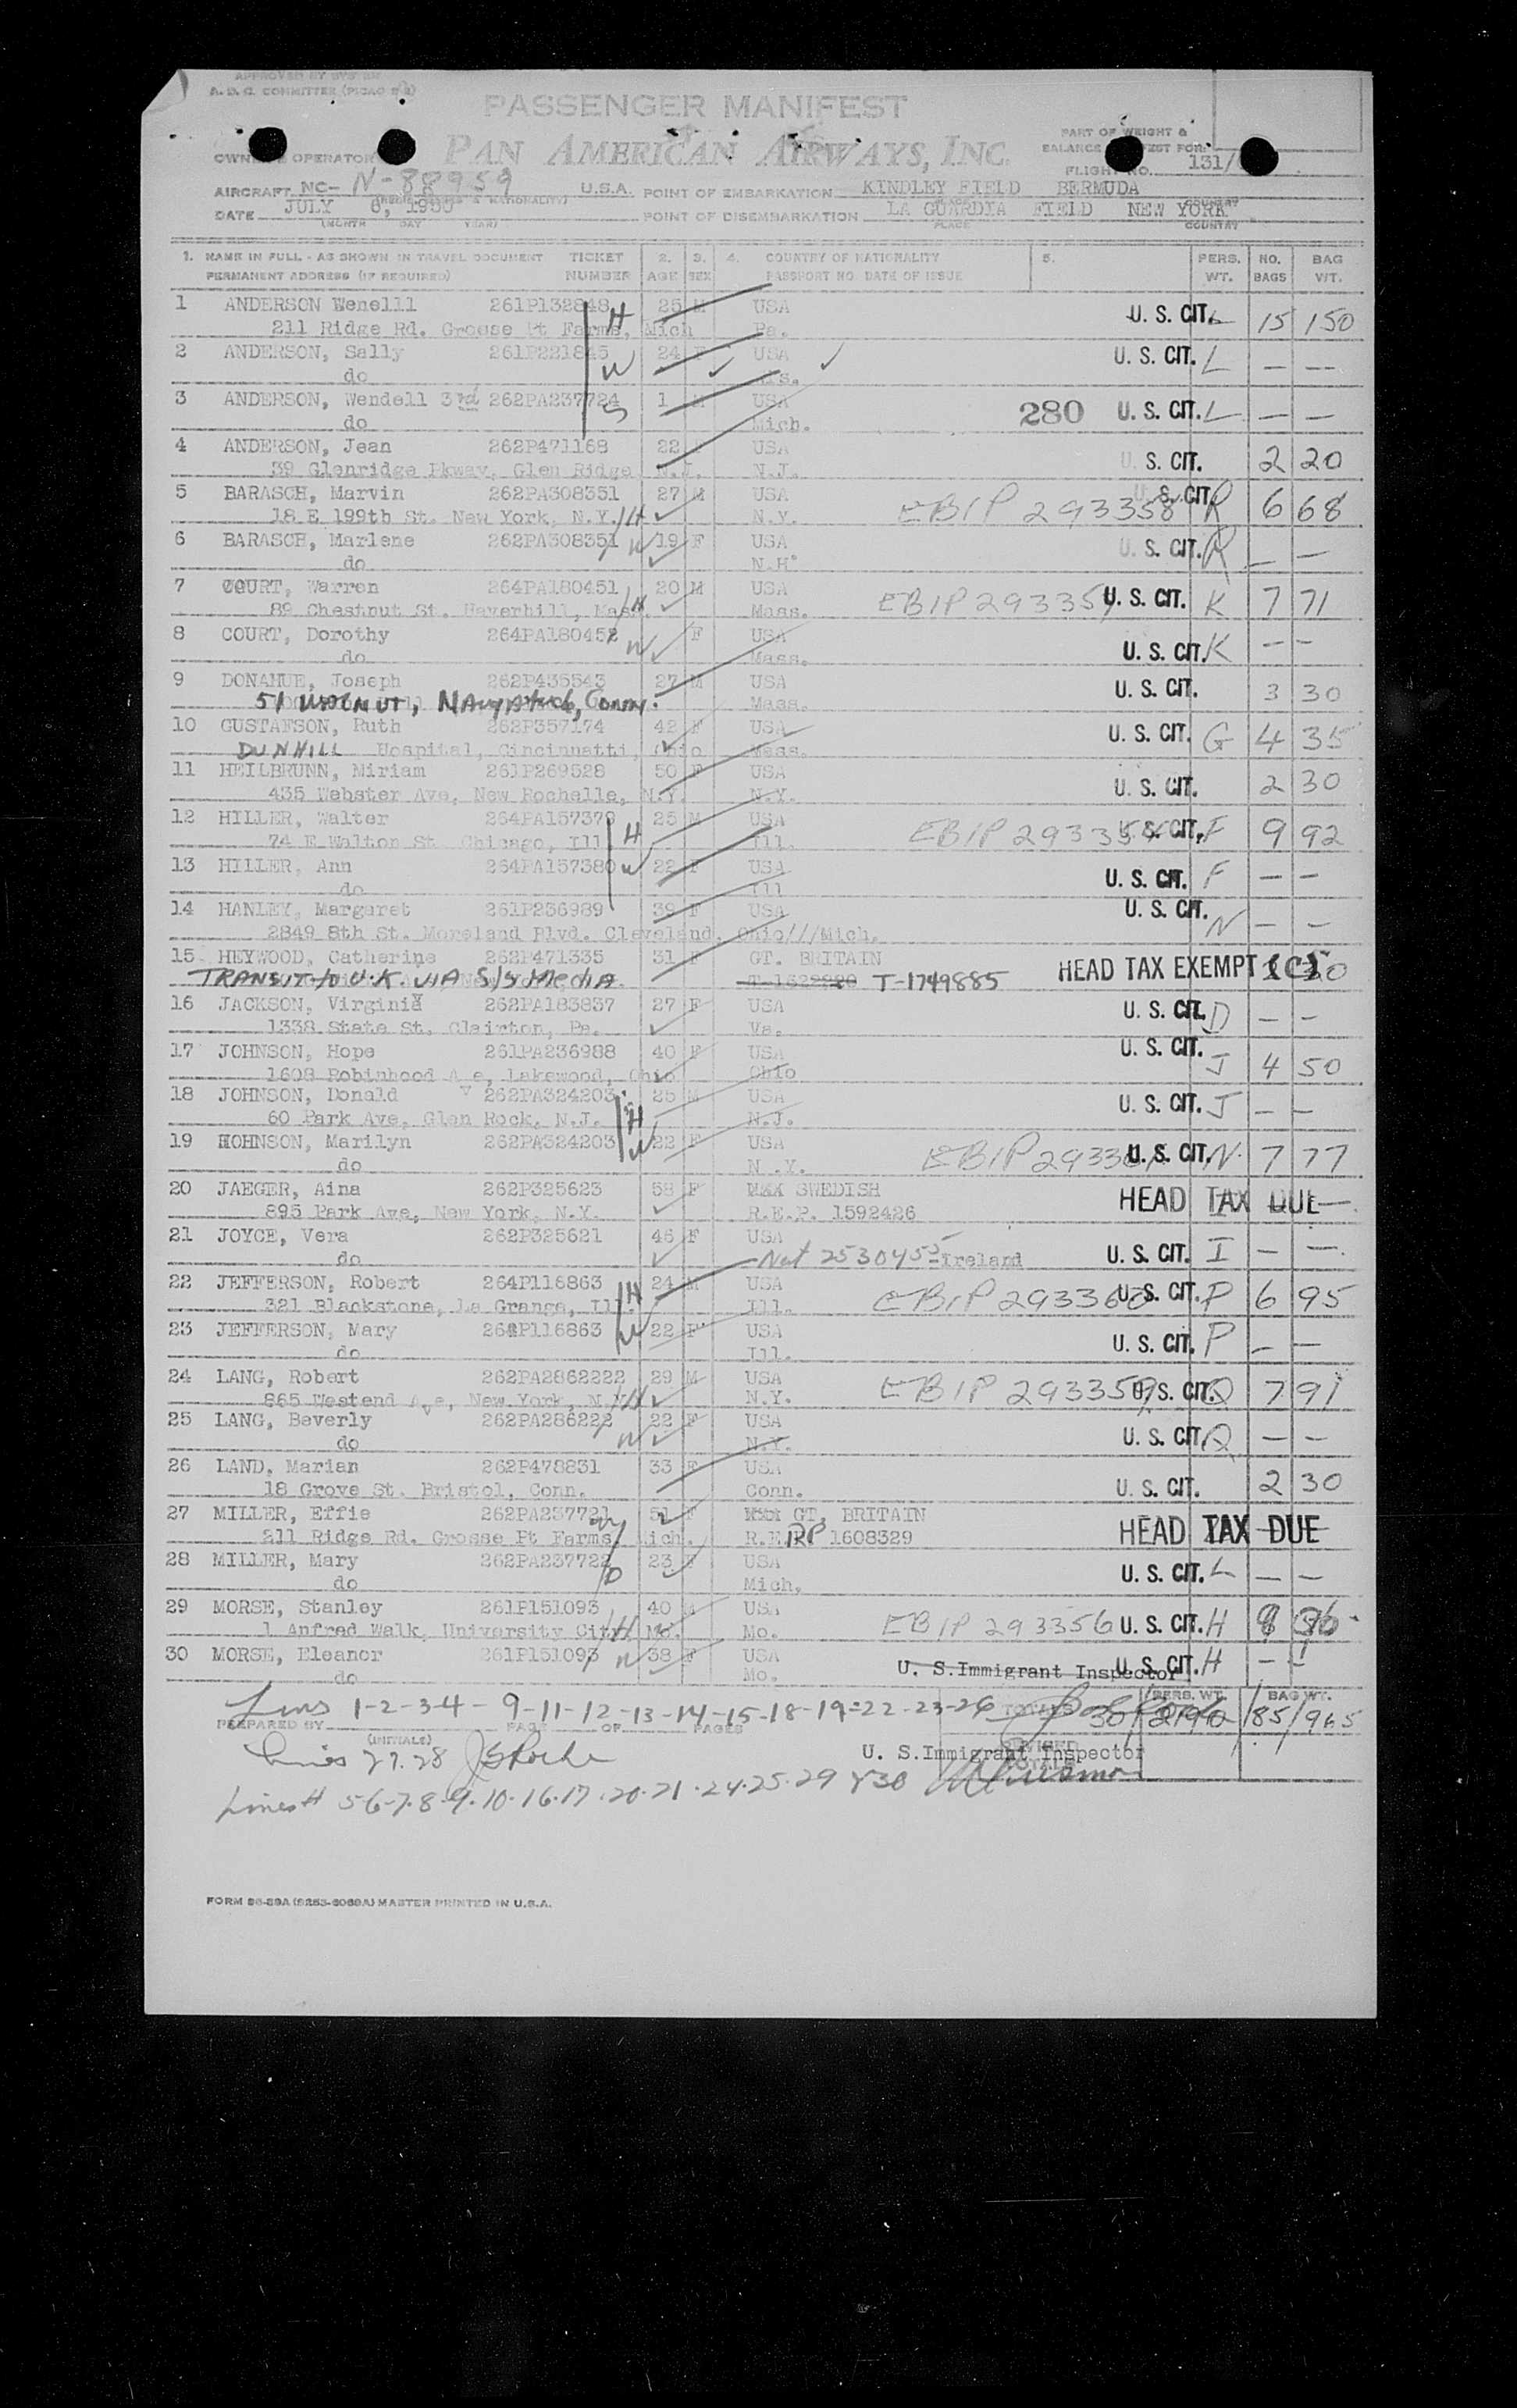 APPROVED BY
A.D.C. COMMITTEE (PICAO
PASSENGER MANIFEST
OPERATOR PAN AMERICAN AIRWAYS, INC.
PART OF WEIGHT &
BALANCE FOR:
FLIGHT NO. 131/
AIRCRAFT NC- N-88959 U.S.A. POINT OF EMBARKATION KINDLEY FIELD BERMUDA
DATE JULY 6, 1950 POINT OF DISEMBARKATION LA GUARDIA FIELD NEW YORK
(MONTH DAY YEAR) PLACE COUNTRY
1. NAME IN FULL - AS SHOWN IN TRAVEL DOCUMENT TICKET 2. 3. 4. COUNTRY OF NATIONALITY 5. PERS. NO. BAG
PERMANENT ADDRESS (IF REQUIRED) NUMBER AGE SEX PASSPORT NO. DATE OF ISSUE WT. BAGS WT.
1 ANDERSON Wenelll 261P132848 H 25 M USA U. S. CIT. L 15 150
211 Ridge Rd. Grosse Pt Farms, Mich Pa.
2 ANDERSON, Sally 261P221845 W 24 F USA U. S. CIT. L — —
do
3 ANDERSON, Wendell 3rd 262PA237724 S 1 M USA 280 U. S. CIT. L — —
do Mich.
4 ANDERSON, Jean 262P471168 22 USA U. S. CIT. 2 20
39 Glenridge Pkway, Glen Ridge N.J. N.J.
5 BARASCH, Marvin 262PA308351 27 M USA EBIP 293358 U. S. CIT. R 6 68
18 E 199th St. New York, N.Y. H N.Y.
6 BARASCH, Marlene 262PA308351 W 19 F USA U. S. CIT. R — —
do N.H.
7 COURT, Warren 264PA180451 20 M USA EBIP 29335 U. S. CIT. K 7 71
89 Chestnut St. Haverhill, Mass. H Mass.
8 COURT, Dorothy 264PA180452 W F USA U. S. CIT. K — —
do Mass.
9 DONAHUE, Joseph 262P435543 27 M USA U. S. CIT. 3 30
51 WALNUT, Naugatuck, Conn. Mass.
10 GUSTAFSON, Ruth 262P357174 42 F USA U. S. CIT. G 4 35
DUNHILL Hospital, Cincinnatti, Ohio Mass.
11 HEILBRUNN, Miriam 261P269528 50 F USA U. S. CIT. 2 30
435 Webster Ave, New Rochelle, N.Y. N.Y.
12 HILLER, Walter 264PA157379 H 25 M USA EBIP 29335 U. S. CIT. F 9 92
74 E Walton St Chicago, Ill Ill.
13 HILLER, Ann 264PA157380 W 22 F USA U. S. CIT. F — —
do Ill
14 HANLEY, Margaret 261P236989 39 F USA U. S. CIT. N — —
2849 8th St. Moreland Blvd. Cleveland, Ohio///Mich.
15 HEYWOOD, Catherine 262P471335 31 F GT. BRITAIN HEAD TAX EXEMPT (C)
TRANSIT to U.K. VIA S/S Media T-1749885
16 JACKSON, Virginia 262PA183837 27 F USA U. S. CIT. D — —
1338 State St. Clairton, Pa. Va.
17 JOHNSON, Hope 261PA236988 40 F USA U. S. CIT. J 4 50
1608 Robinhood Ave, Lakewood, Ohio Ohio
18 JOHNSON, Donald 262PA324203 H 25 M USA U. S. CIT. J — —
60 Park Ave, Glen Rock, N.J. N.J.
19 HOHNSON, Marilyn 262PA324203 W 22 F USA EBIP 2933 U. S. CIT. N 7 77
do N.Y.
20 JAEGER, Aina 262P325623 58 F SWEDISH HEAD TAX DUE —
895 Park Ave, New York, N.Y. R.E.P. 1592426
21 JOYCE, Vera 262P325621 46 F USA U. S. CIT. I — —
do Nat 2530455 Ireland
22 JEFFERSON, Robert 264P116863 H 24 M USA EBIP 29336 U. S. CIT. P 6 95
321 Blackstone, La Grange, Ill. Ill.
23 JEFFERSON, Mary 264P116863 W 22 F USA U. S. CIT. P — —
do Ill.
24 LANG, Robert 262PA2862222 29 M USA EBIP 293359 U. S. CIT. Q 7 91
865 Westend Ave, New York, N.Y. H N.Y.
25 LANG, Beverly 262PA286222 W 22 F USA U. S. CIT. Q — —
do N.Y.
26 LAND, Marian 262P478831 33 F USA U. S. CIT. 2 30
18 Grove St. Bristol, Conn. Conn.
27 MILLER, Effie 262PA237721 51 F GT. BRITAIN HEAD TAX DUE
211 Ridge Rd. Grosse Pt Farms, Mich. R.E. RP 1608329
28 MILLER, Mary 262PA237722 D 23 F USA U. S. CIT. L — —
do Mich.
29 MORSE, Stanley 261P151093 40 M USA EBIP 293356 U. S. CIT. H
1 Anfred Walk, University City H Mo. Mo.
30 MORSE, Eleanor 261P151093 W 38 F USA U. S. CIT. H — —
do Mo. U. S. Immigrant Inspector
Lines 1-2-3-4-9-11-12-13-14-15-18-19-22-23-26 TOTALS 30 PERS. WT. BAG WT. 85 965
PREPARED BY PAGE OF PAGES
(INITIALS)
Lines 27.28 U. S. Immigrant Inspector
Lines# 5-6-7-8-9-10-16-17-20-21-24-25-29 &30
FORM 96-89A (9253-6069A) MASTER PRINTED IN U.S.A.